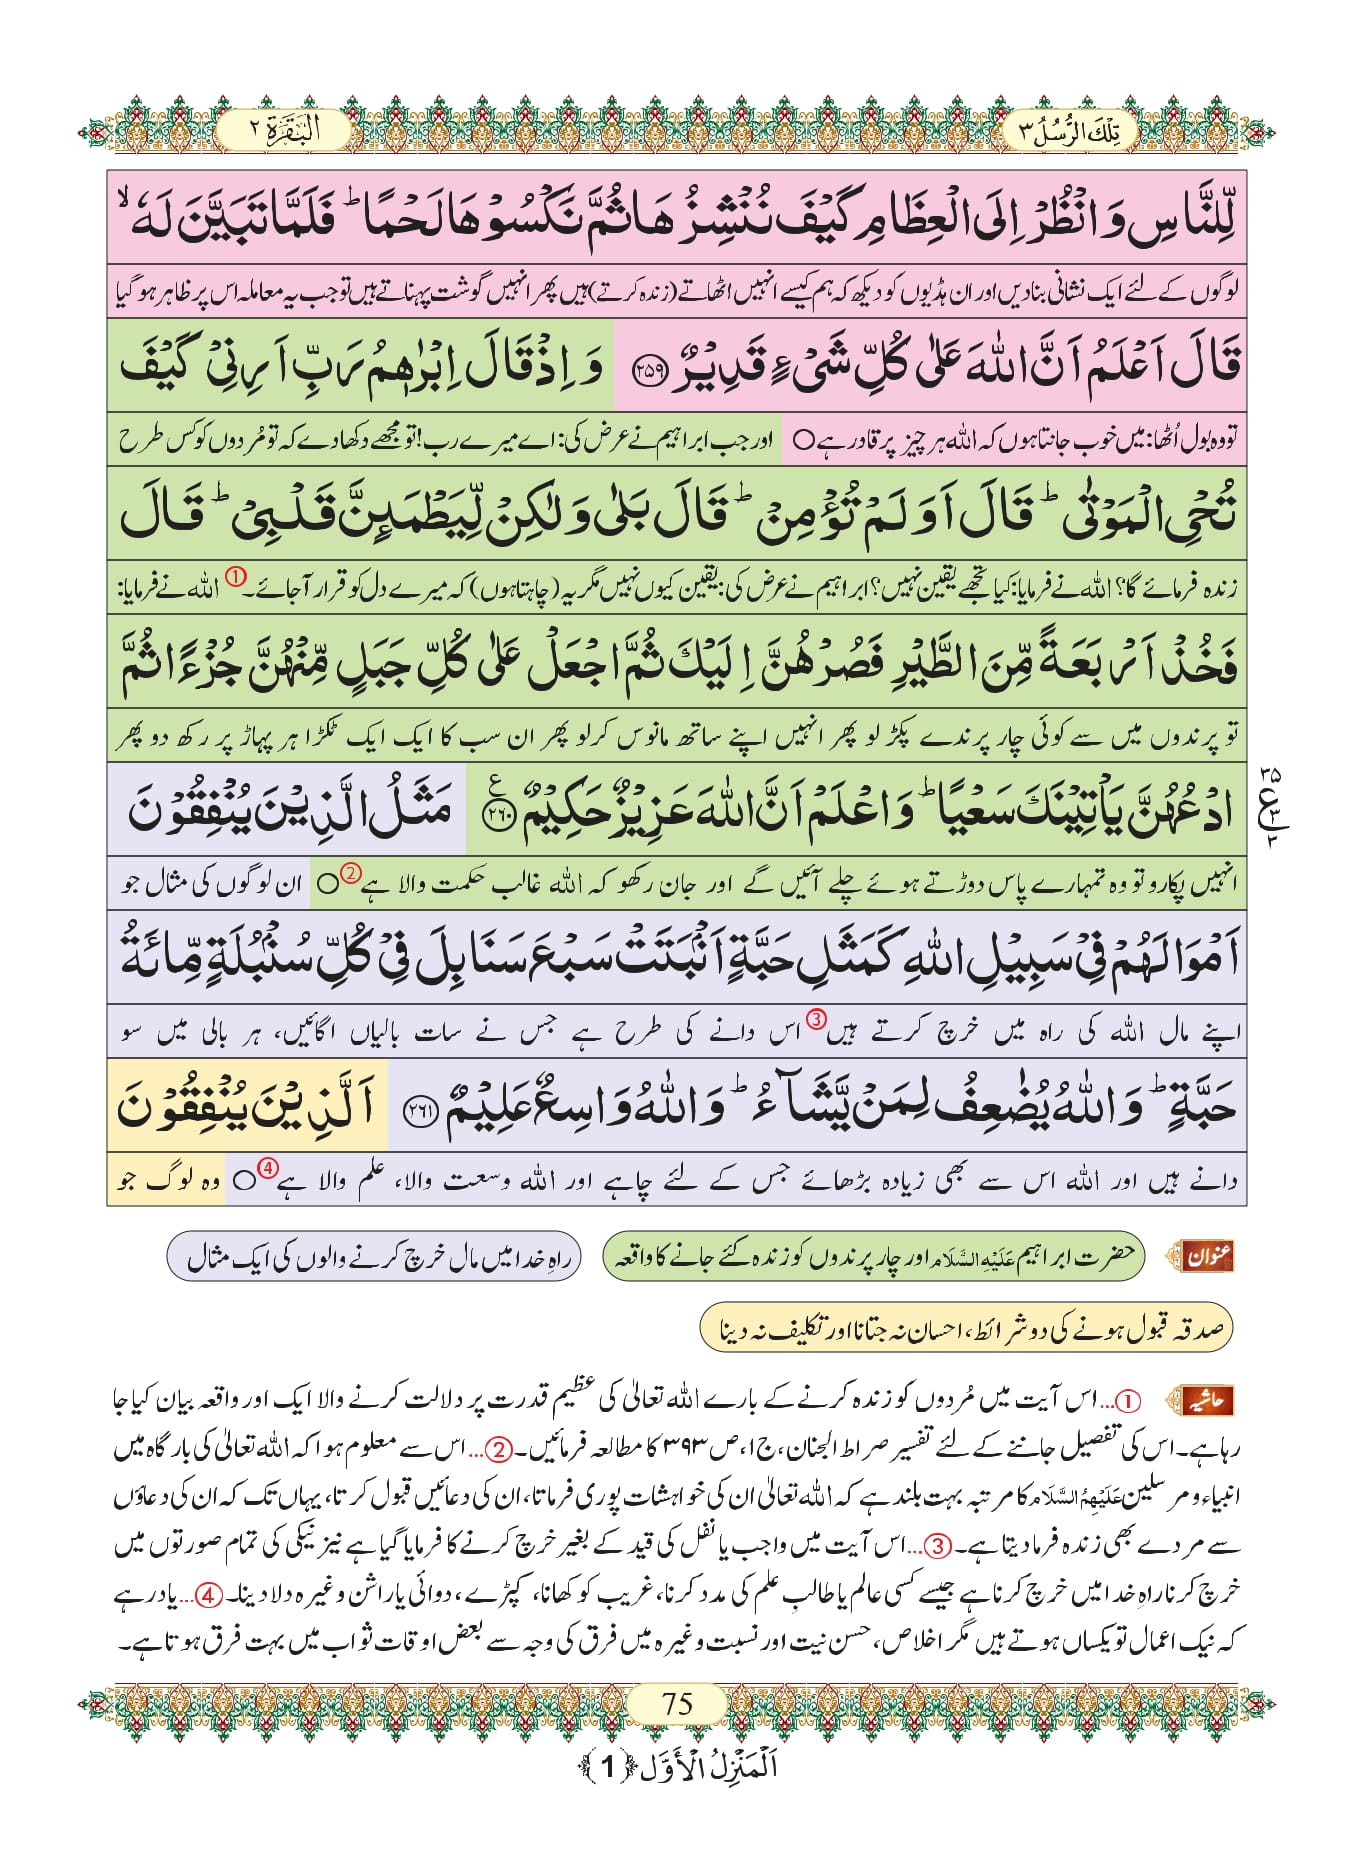 تِلْكَ الرُّسُلُ ٣
الْبَقَرَة ٢
لِّلنَّاسِ وَانْظُرْ اِلَى الْعِظَامِ كَيْفَ نُنْشِزُهَا ثُمَّ نَكْسُوْهَا لَحْمًا ؕ فَلَمَّا تَبَيَّنَ لَهٗ ۙ
لوگوں کے لئے ایک نشانی بنادیں اور ان ہڈیوں کو دیکھ کہ ہم کیسے انہیں اٹھاتے (زندہ کرتے) ہیں پھر انہیں گوشت پہناتے ہیں تو جب یہ معاملہ اس پر ظاہر ہو گیا
قَالَ اَعْلَمُ اَنَّ اللهَ عَلٰى كُلِّ شَیْءٍ قَدِيْرٌ ﴿۲۵۹﴾ وَ اِذْ قَالَ اِبْرٰهٖمُ رَبِّ اَرِنِیْ كَيْفَ
تو وہ بول اُٹھا: میں خوب جانتا ہوں کہ الله ہر چیز پر قادر ہے ○ اور جب ابراہیم نے عرض کی: اے میرے رب! تو مجھے دکھا دے کہ تو مُردوں کو کس طرح
تُحْیِ الْمَوْتٰى ؕ قَالَ اَوَ لَمْ تُؤْمِنْ ؕ قَالَ بَلٰى وَ لٰكِنْ لِّيَطْمَىِٕنَّ قَلْبِیْ ؕ قَالَ
زندہ فرمائے گا؟ الله نے فرمایا: کیا تجھے یقین نہیں؟ ابراہیم نے عرض کی: یقین کیوں نہیں مگر یہ (چاہتا ہوں) کہ میرے دل کو قرار آجائے۔ ① الله نے فرمایا:
فَخُذْ اَرْبَعَةً مِّنَ الطَّيْرِ فَصُرْهُنَّ اِلَيْكَ ثُمَّ اجْعَلْ عَلٰى كُلِّ جَبَلٍ مِّنْهُنَّ جُزْءًا ثُمَّ
تو پرندوں میں سے کوئی چار پرندے پکڑ لو پھر انہیں اپنے ساتھ مانوس کرلو پھر ان سب کا ایک ایک ٹکڑا ہر پہاڑ پر رکھ دو پھر
ادْعُهُنَّ يَاْتِيْنَكَ سَعْيًا ؕ وَ اعْلَمْ اَنَّ اللهَ عَزِيْزٌ حَكِيْمٌ ﴿۲۶۰﴾ ع مَثَلُ الَّذِيْنَ يُنْفِقُوْنَ
۳۵
ع
۳
۳
انہیں پکارو تو وہ تمہارے پاس دوڑتے ہوئے چلے آئیں گے اور جان رکھو کہ الله غالب حکمت والا ہے ② ○ ان لوگوں کی مثال جو
اَمْوَالَهُمْ فِیْ سَبِيْلِ اللهِ كَمَثَلِ حَبَّةٍ اَنْۢبَتَتْ سَبْعَ سَنَابِلَ فِیْ كُلِّ سُنْۢبُلَةٍ مِّائَةُ
اپنے مال الله کی راہ میں خرچ کرتے ہیں ③ اس دانے کی طرح ہے جس نے سات بالیاں اگائیں، ہر بالی میں سو
حَبَّةٍ ؕ وَ اللهُ يُضٰعِفُ لِمَنْ يَّشَآءُ ؕ وَ اللهُ وَاسِعٌ عَلِيْمٌ ﴿۲۶۱﴾ اَلَّذِيْنَ يُنْفِقُوْنَ
دانے ہیں اور الله اس سے بھی زیادہ بڑھائے جس کے لئے چاہے اور الله وسعت والا، علم والا ہے ④ ○ وہ لوگ جو
عنوان حضرت ابراہیم عَلَيْهِ السَّلَام اور چار پرندوں کو زندہ کئے جانے کا واقعہ راہِ خدا میں مال خرچ کرنے والوں کی ایک مثال
صدقہ قبول ہونے کی دو شرائط، احسان نہ جتانا اور تکلیف نہ دینا
حاشیہ ①... اس آیت میں مُردوں کو زندہ کرنے کے بارے الله تعالیٰ کی عظیم قدرت پر دلالت کرنے والا ایک اور واقعہ بیان کیا جا
رہا ہے۔ اس کی تفصیل جاننے کے لئے تفسیر صراط الجنان، ج۱، ص۳۹۳ کا مطالعہ فرمائیں۔ ②... اس سے معلوم ہوا کہ الله تعالیٰ کی بارگاہ میں
انبیاء و مرسلین عَلَيْهِمُ السَّلَام کا مرتبہ بہت بلند ہے کہ الله تعالیٰ ان کی خواہشات پوری فرماتا، ان کی دعائیں قبول کرتا، یہاں تک کہ ان کی دعاؤں
سے مردے بھی زندہ فرما دیتا ہے۔ ③... اس آیت میں واجب یا نفل کی قید کے بغیر خرچ کرنے کا فرمایا گیا ہے نیز نیکی کی تمام صورتوں میں
خرچ کرنا راہِ خدا میں خرچ کرنا ہے جیسے کسی عالم یا طالبِ علم کی مدد کرنا، غریب کو کھانا، کپڑے، دوائی یا راشن وغیرہ دلا دینا۔ ④... یاد رہے
کہ نیک اعمال تو یکساں ہوتے ہیں مگر اخلاص، حسن نیت اور نسبت وغیرہ میں فرق کی وجہ سے بعض اوقات ثواب میں بہت فرق ہوتا ہے۔
75
اَلْمَنْزِلُ الْأَوَّل ﴿1﴾